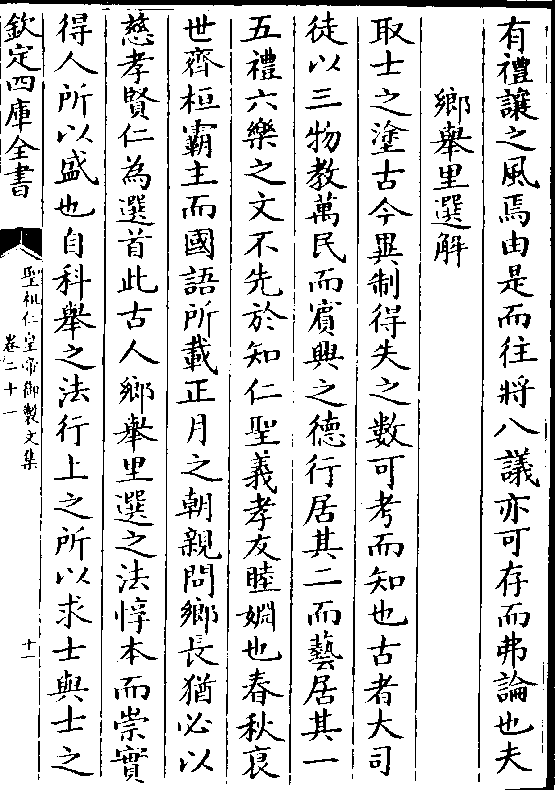 有禮讓之風焉由是而往將八議亦可存而弗論也夫
鄉舉里選解
取士之塗古今異制得失之數可考而知也古者大司
徒以三物教萬民而賓興之德行居其二而藝居其一
五禮六樂之文不先於知仁聖義孝友睦婣也春秋衰
世齊桓霸主而國語所載正月之朝親問鄉長猶必以
慈孝賢仁為選首此古人鄉舉里選之法惇本而崇實
得人所以盛也自科舉之法行上之所以求士與士之
欽定四庫全書
聖祖仁皇帝御製文集
卷二十一
十一